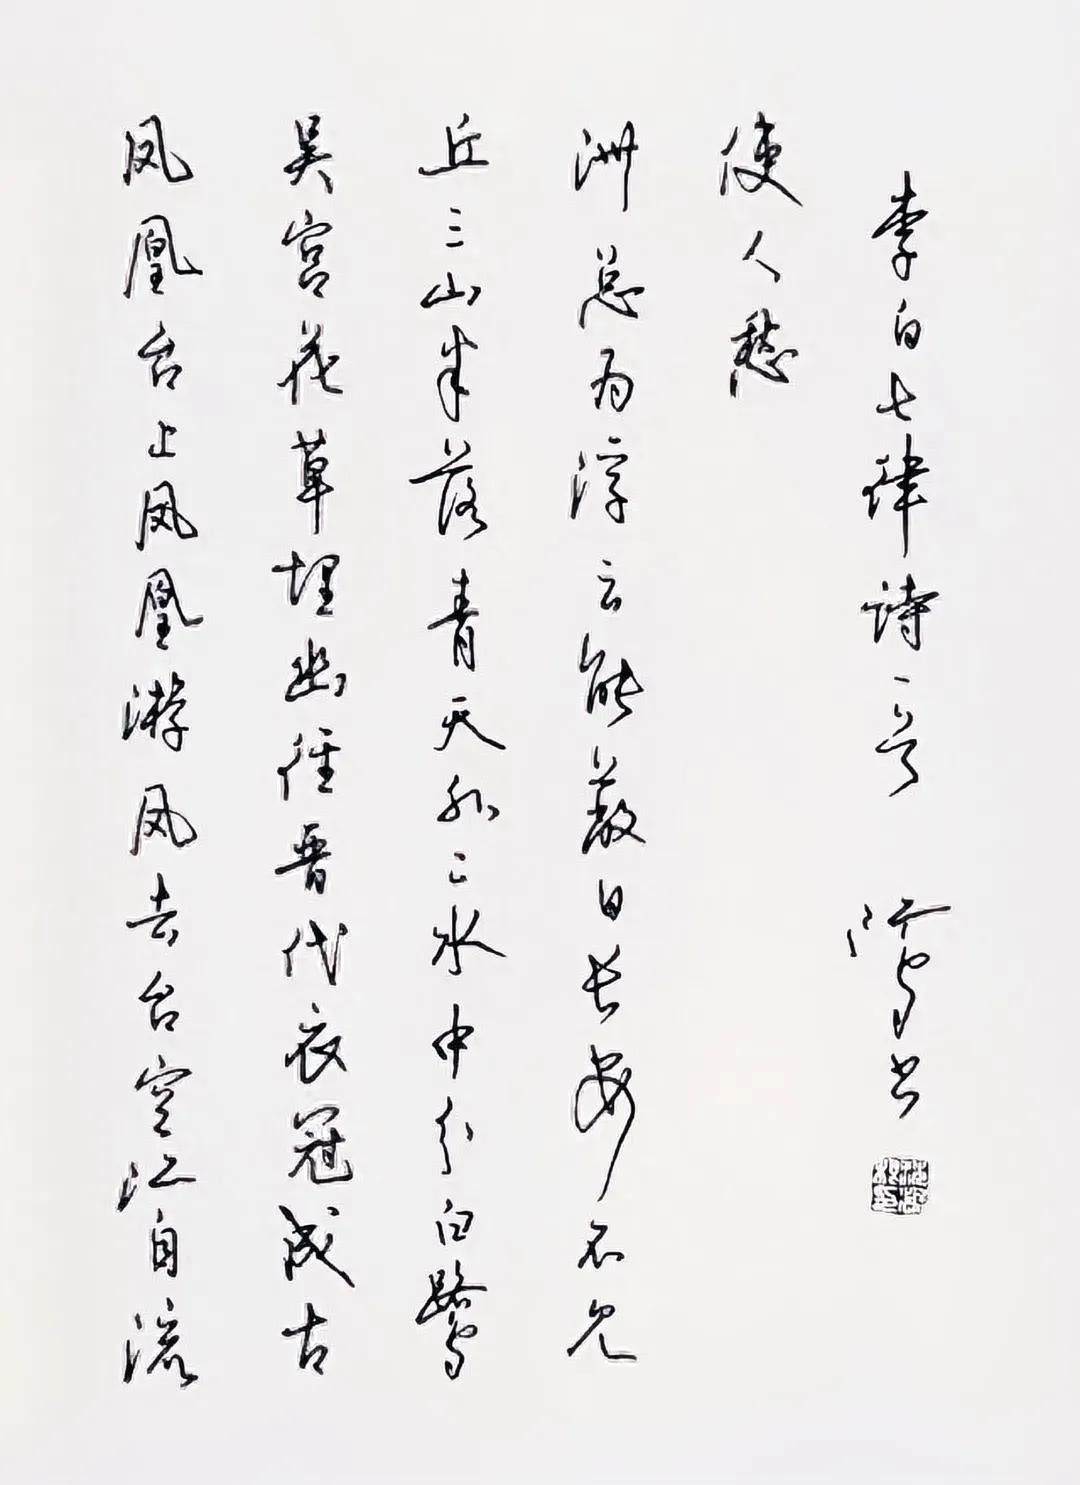 凤凰台上凤凰游凤去台空江自流
吴宫花草埋幽径晋代衣冠成古
丘三山半落青天外二水中分白鹭
洲总为浮云能蔽日长安不见
使人愁
李白七律诗一首 鸿书